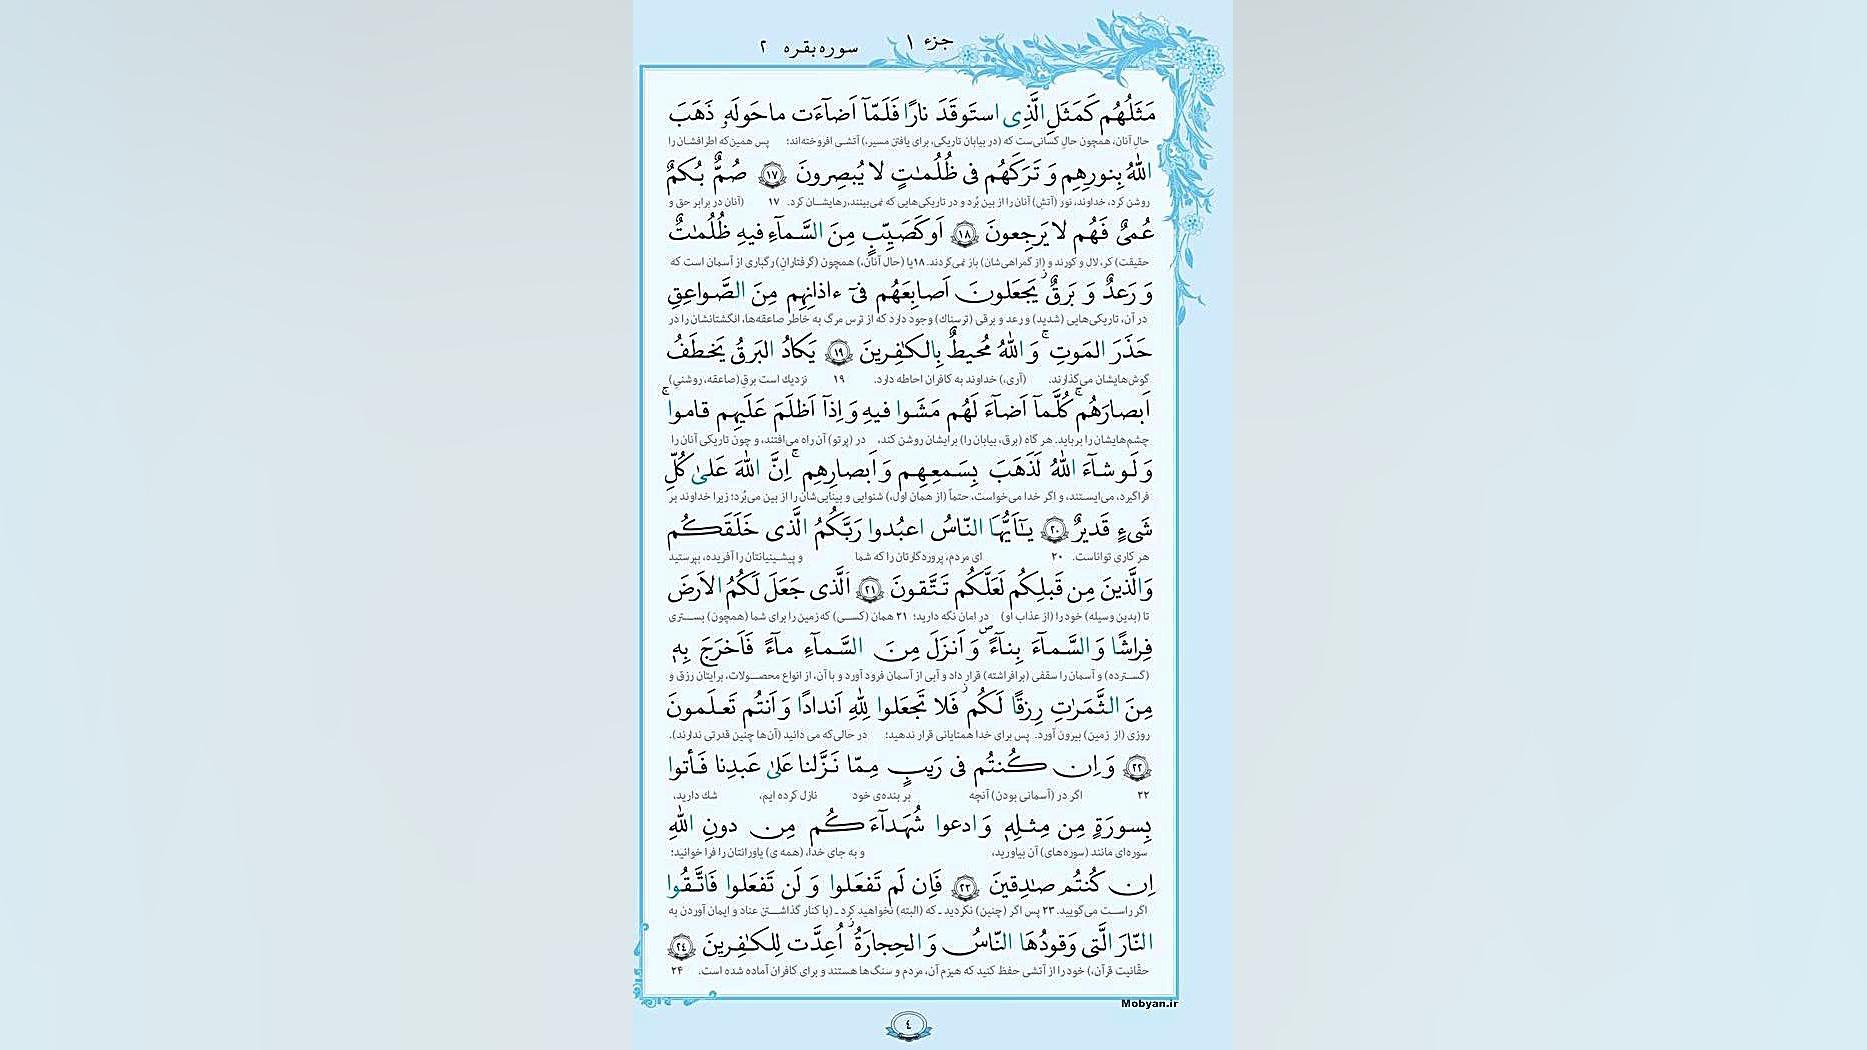 جزء ۱
سوره بقره ۲
مَثَلُهُم كَمَثَلِ الَّذِى استَوقَدَ نارًا فَلَمّآ اَضآءَت ماحَولَهۥ ذَهَبَ
حالِ آنان، همچون حالِ کسانی‌ست که (در بیابان تاریکی، برای یافتن مسیر،) آتشی افروخته‌اند؛ پس همین‌که اطرافشان را
اللّٰهُ بِنورِهِم وَ تَرَكَهُم فى ظُلُمـٰتٍ لا يُبصِرونَ ١٧ صُمٌّ بُكمٌ
روشن کرد، خداوند، نور (آتش) آنان را از بین بُرد و در تاریکی‌هایی که نمی‌بینند، رهایشان کرد. ۱۷ (آنان در برابر حق و
عُمىٌ فَهُم لا يَرجِعونَ ١٨ اَوكَصَيِّبٍ مِنَ السَّمآءِ فيهِ ظُلُمـٰتٌ
حقیقت) کر، لال و کورند و (از گمراهی‌شان) باز نمی‌گردند. ۱۸ یا (حال آنان،) همچون (گرفتارانِ) رگباری از آسمان است که
وَ رَعدٌ وَ بَرقٌ ۚ يَجعَلونَ اَصابِعَهُم فىٓ ءاذانِهِم مِنَ الصَّواعِقِ
در آن، تاریکی‌هایی (شدید) و رعد و برقی (ترسناك) وجود دارد که از ترس مرگ به خاطر صاعقه‌ها، انگشتانشان را در
حَذَرَ المَوتِ ۚ وَ اللّٰهُ مُحيطٌ بِالكـٰفِرينَ ١٩ يَكادُ البَرقُ يَخطَفُ
گوش‌هایشان می‌گذارند. (آری،) خداوند به کافران احاطه دارد. ۱۹ نزدیك است برقِ (صاعقه، روشنیِ)
اَبصارَهُم ۖ كُلَّمآ اَضآءَ لَهُم مَشَوا فيهِ وَ اِذآ اَظلَمَ عَلَيهِم قاموا ۚ
چشم‌هایشان را برباید. هر گاه (برق، بیابان را) برایشان روشن کند، در (پرتوِ) آن راه می‌افتند، و چون تاریکی آنان را
وَ لَو شآءَ اللّٰهُ لَذَهَبَ بِسَمعِهِم وَ اَبصارِهِم ۚ اِنَّ اللّٰهَ عَلىٰ كُلِّ
فراگیرد، می‌ایستند، و اگر خدا می‌خواست، حتماً (از همان اول،) شنوایی و بینایی‌شان را از بین می‌بُرد؛ زیرا خداوند بر
شَىءٍ قَديرٌ ٢٠ يـٰٓاَيُّهَا النّاسُ اعبُدوا رَبَّكُمُ الَّذى خَلَقَكُم
هر کاری تواناست. ۲۰ ای مردم، پروردگارتان را که شما و پیشینیانتان را آفریده، بپرستید
وَالَّذينَ مِن قَبلِكُم لَعَلَّكُم تَتَّقونَ ٢١ اَلَّذى جَعَلَ لَكُمُ الاَرضَ
تا (بدین وسیله) خود را (از عذاب او) در امان نگه دارید؛ ۲۱ همان (کسی) که زمین را برای شما (همچون) بستری
فِراشًا وَ السَّمآءَ بِنآءً ۖ وَ اَنزَلَ مِنَ السَّمآءِ مآءً فَاَخرَجَ بِهٖ
(گسترده) و آسمان را سقفی (برافراشته) قرار داد و آبی از آسمان فرود آورد و با آن، از انواع محصولات، برایتان رزق و
مِنَ الثَّمَرٰتِ رِزقًا لَكُم ۖ فَلا تَجعَلوا لِلّٰهِ اَندادًا وَ اَنتُم تَعلَمونَ
روزی (از زمین) بیرون آورد. پس برای خدا همتایانی قرار ندهید؛ در حالی‌که می دانید (آن‌ها چنین قدرتی ندارند).
٢٢ وَ اِن كُنتُم فى رَيبٍ مِمّا نَزَّلنا عَلىٰ عَبدِنا فَأتوا
۲۲ اگر در (آسمانی بودن) آنچه بر بنده‌ی خود نازل کرده ایم، شك دارید،
بِسورَةٍ مِن مِثلِهٖ وَ ادعوا شُهَدآءَكُم مِن دونِ اللّٰهِ
سوره‌ای مانند (سوره‌های) آن بیاورید، و به جای خدا، (همه ی) یاورانتان را فرا خوانید؛
اِن كُنتُم صـٰدِقينَ ٢٣ فَاِن لَم تَفعَلوا وَ لَن تَفعَلوا فَاتَّقُوا
اگر راست می‌گویید. ۲۳ پس اگر (چنین) نکردید ـ که (البته) نخواهید کرد ـ (با کنار گذاشتن عناد و ایمان آوردن به
النّارَ الَّتى وَقودُهَا النّاسُ وَ الحِجارَةُ ۖ اُعِدَّت لِلكـٰفِرينَ ٢٤
حقّانیت قرآن،) خود را از آتشی حفظ کنید که هیزم آن، مردم و سنگ‌ها هستند و برای کافران آماده شده است. ۲۴
Mobyan.ir
٤